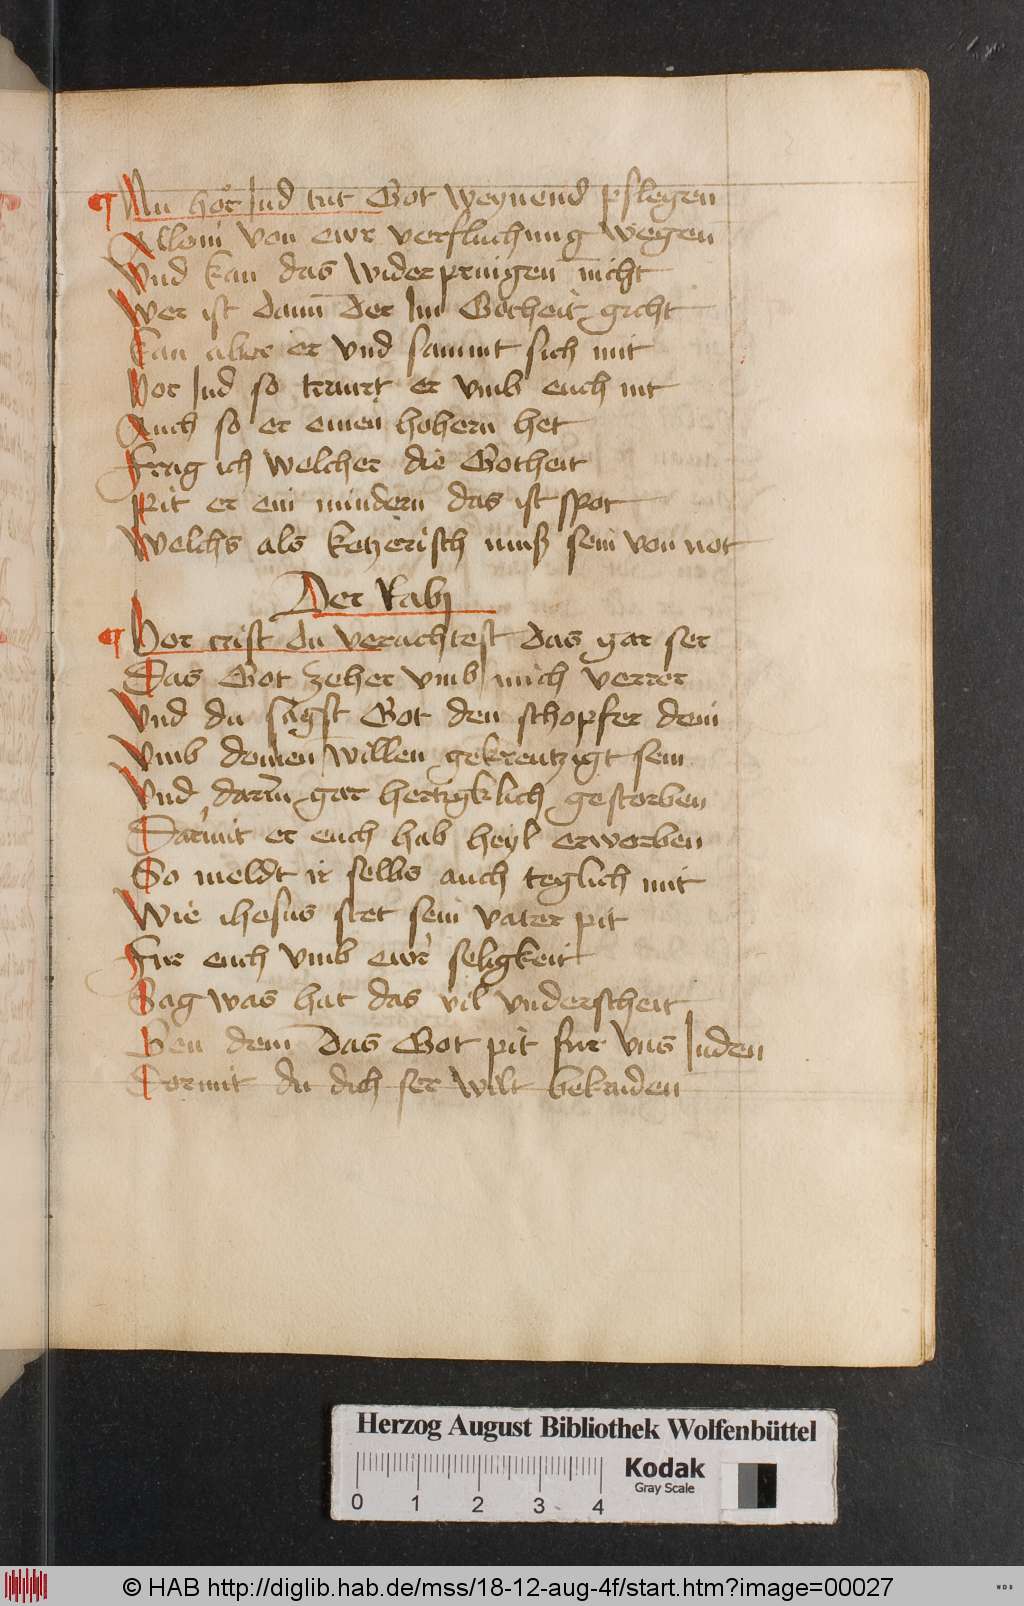 ¶ Nu hoͤr Jud tut Got weynend pflegen
Allein von ewr verfluchung wegen
Vnd kan das widerpringen nicht
Wer ist dann der Im Gotheit gicht
Kan aber er vnd sammt sich mit
Hor Jud so traurt er vmb euch nit
Auch so er einen hohern het
Frag ich welcher die Gotheit
Pit er ein mindern das ist spot
Welchs als ketzerisch muß sein von not
Der Rabj
¶ Hor crist du verachtest das gar ser
Das Got zeher vmb mich verrer
Vnd du sagst Got den schopfer dein
Vmb deinen willen gekreutzigt sein
Vnd darin gar hertigklich gestorben
Darmit er euch hab heyl erworben
So meldt ir selbs auch teglich mit
Wie ihesus stet sein vater pit
Fur euch vmb ewr seligkeit
Sag was hat das vil vnderscheit
Gen dem Das Got pit fur vns Juden
Dormit du dich ser wilt bekruden
Herzog August Bibliothek Wolfenbüttel
0 1 2 3 4
Kodak
Gray Scale
© HAB http://diglib.hab.de/mss/18-12-aug-4f/start.htm?image=00027